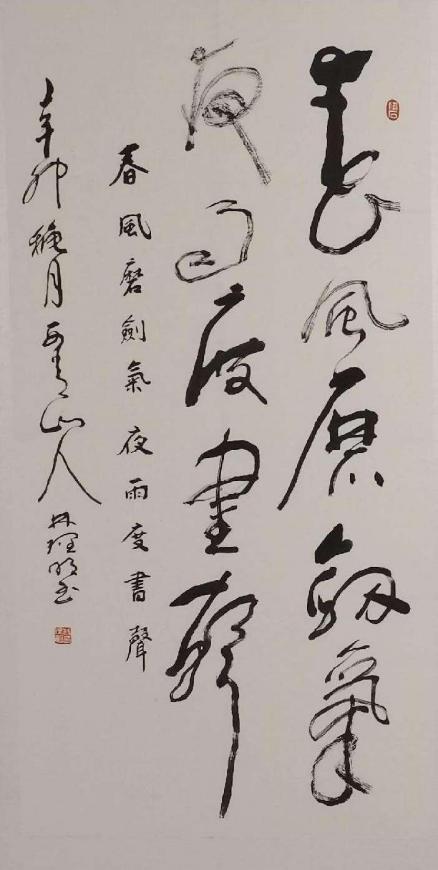 春風磨劍氣
夜雨度書聲
春風磨劍氣夜雨度書聲
辛卯月山人
林書